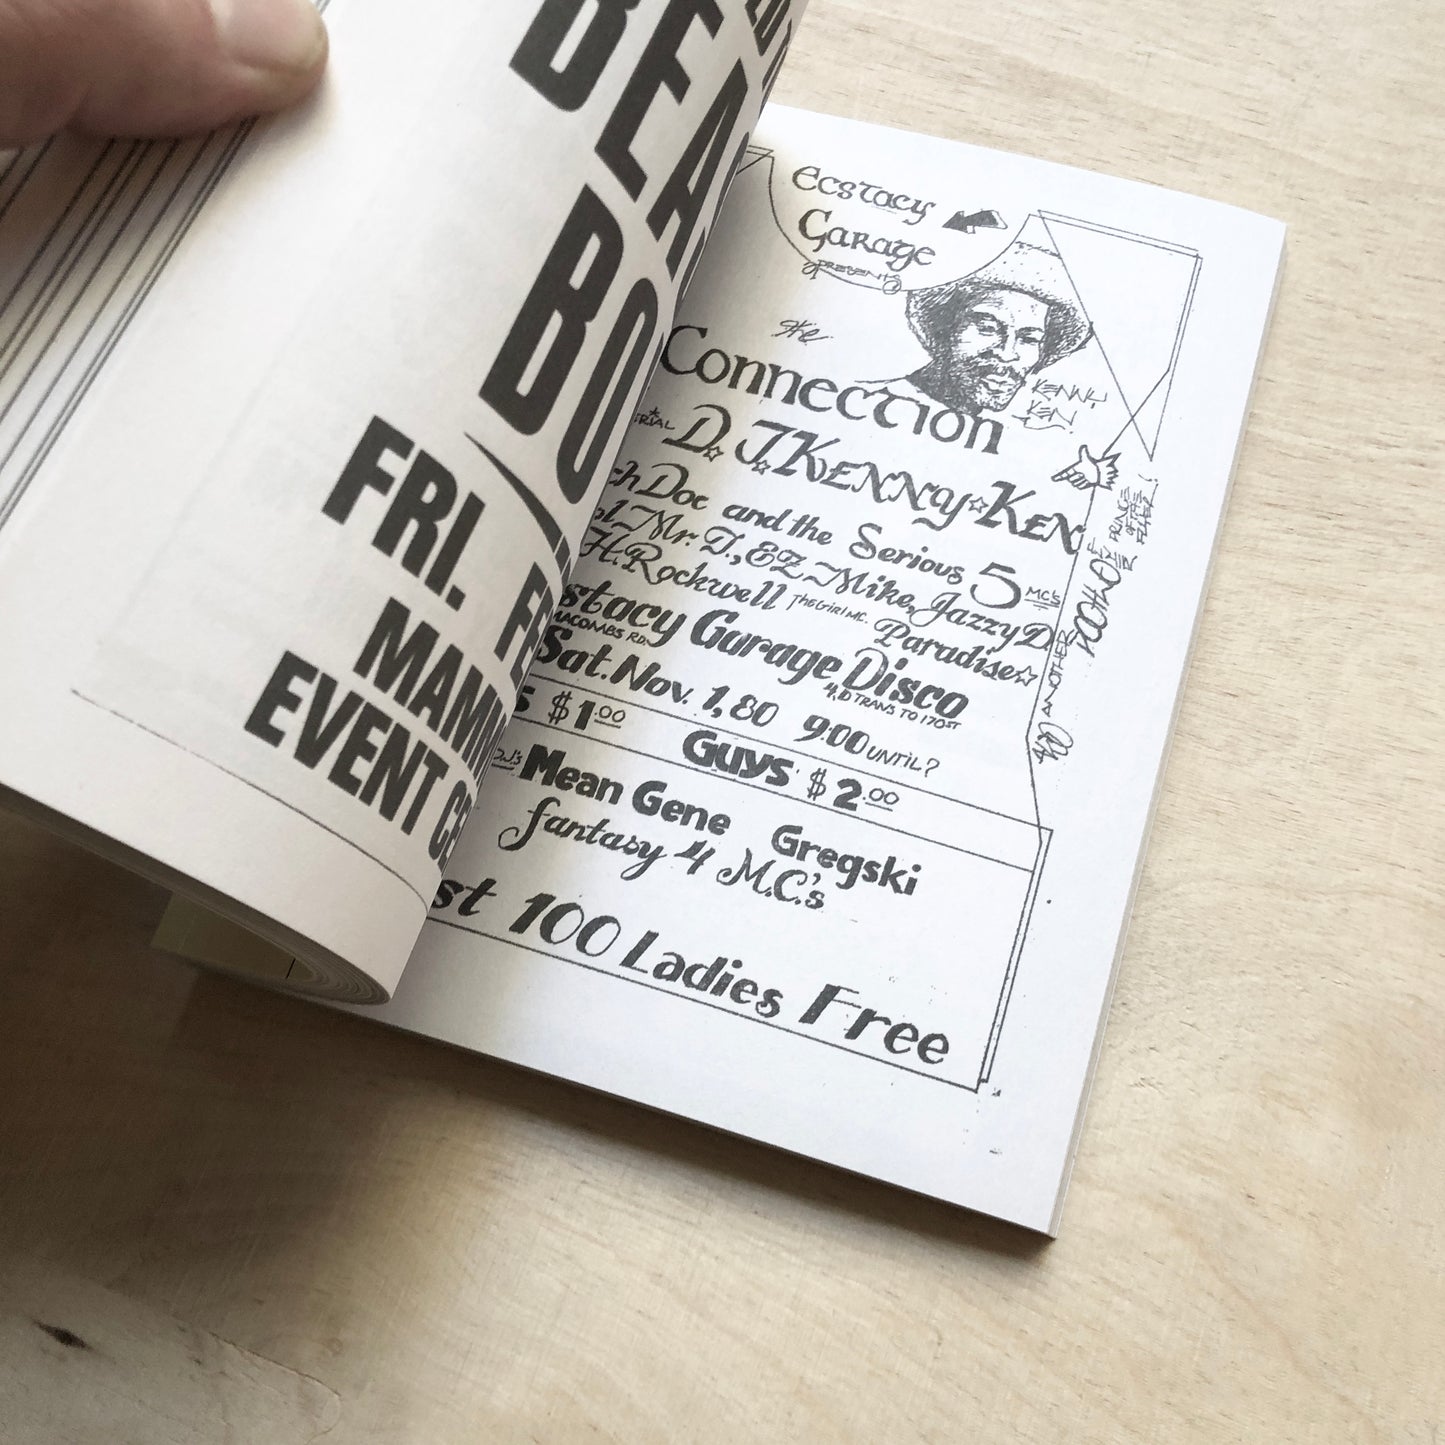 BEA
BO
FRI. FE
MAMM
EVENT CE
Ecstacy
Garage
PRESENTS
the
Connection
KENNY
KEN
D.J. KENNY KEN
ch Doc and the Serious 5 MC'S
ol Mr. D., EZ Mike, Jazzy D.
H. Rockwell THE GIRL MC. Paradise
stacy Garage Disco
MACOMBS RD. 4, D TRANS TO 170ST
Sat. Nov. 1, 80 9:00 UNTIL?
S $1.00 Guys $2.00
D.J.'s Mean Gene Gregski
fantasy 4 M.C.'s
st 100 Ladies Free
ANOTHER